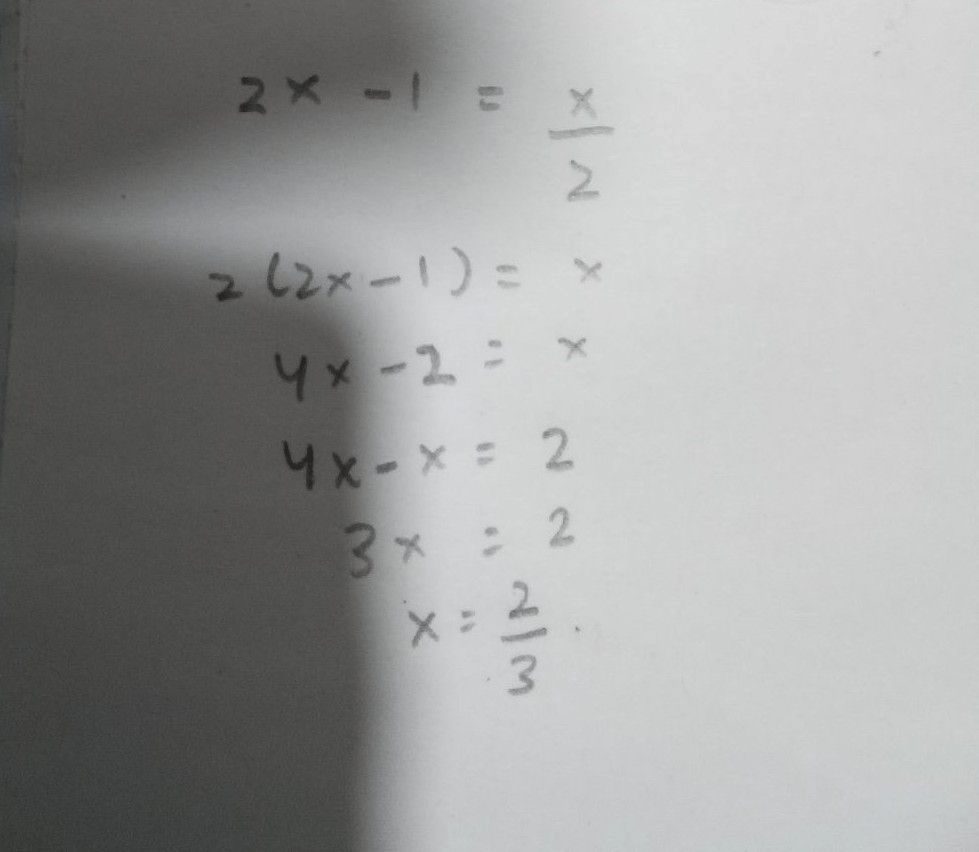 2x - 1 = x/2
2(2x - 1) = x
4x - 2 = x
4x - x = 2
3x = 2
x = 2/3.